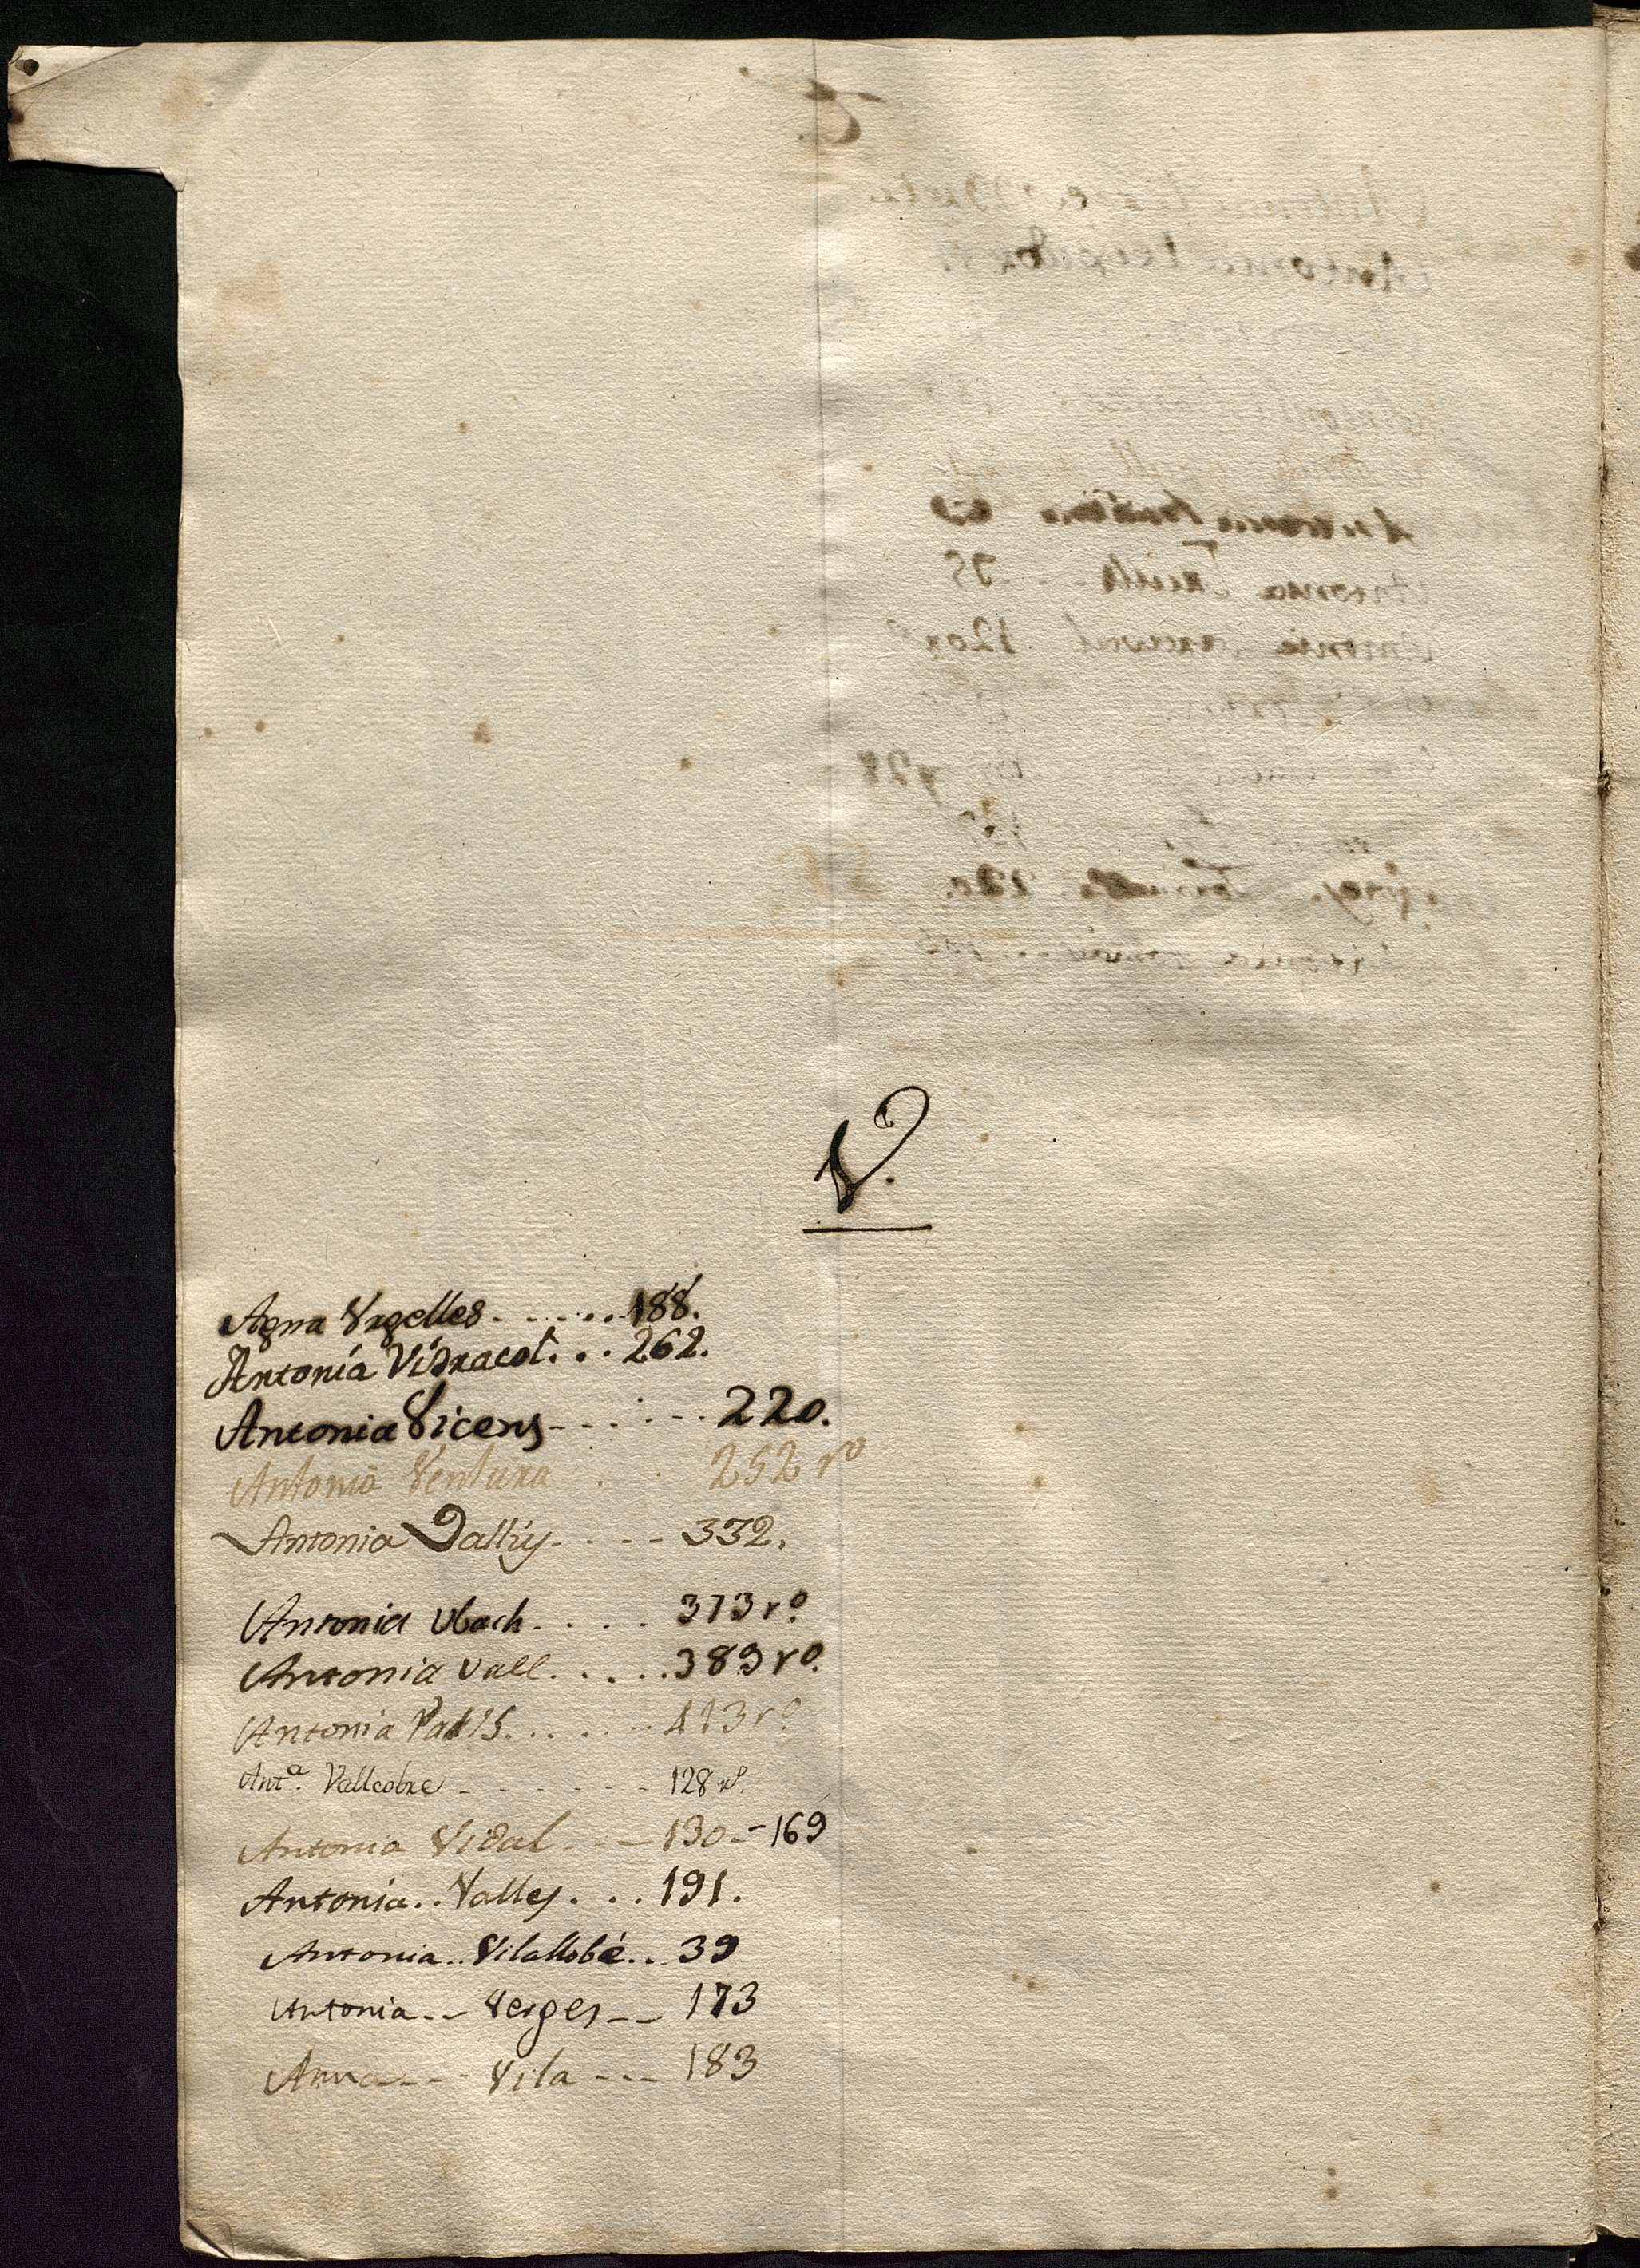 V.
Agna Vrgelles - - - . . . 188.
Antonía Vidracot. . . 262.
Antonia Vicens - - - - - - 220.
Antonia Ventura . . 252 vº
Antonia Vallry. - - - 332.
Antonia Vbach. . . . . 373 vº
Antonia Vall. . . . . 389 vº.
Antonia Valls. . . . . . . 413 vº
Antª. Vallcobre - - - - - - 128 vº.
Antonia Vidal - - - 130 - - 169
Antonía. . Valles. . . . 191.
Antonia. . Vilallobé. . . 39
Antonia - - Verges - - 173
Anna - - - Vila - - - 183